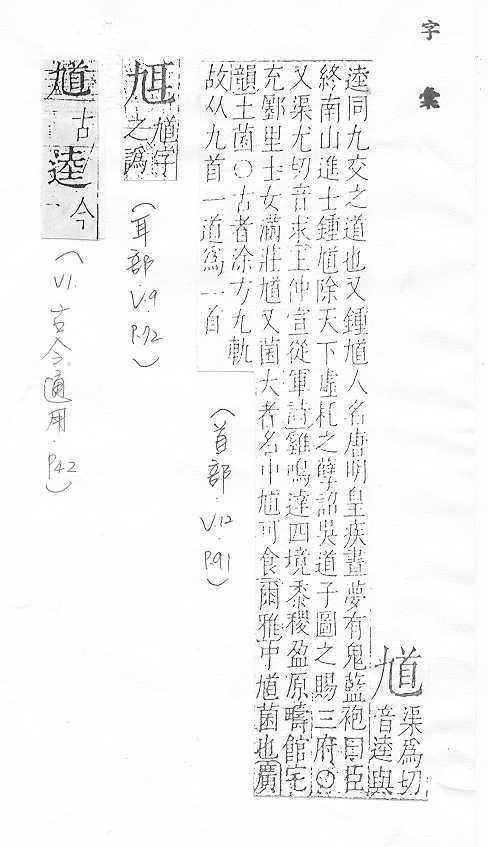 字彙
馗 渠爲切
音逵與
逵同九交之道也又鍾馗人名唐明皇疾晝夢有鬼藍袍曰臣
終南山進士鍾馗除天下虛耗之孽詔吳道子圖之賜三府○
又渠尤切音求王仲宣從軍詩雞鳴達四境黍稷盈原疇館宅
充鄽里士女滿莊馗又菌大者名中馗可食爾雅中馗菌也廣
韻土菌○古者涂方九軌
故从九首一道爲一首
(首部．V.12 P.91)
馗字
之譌
(耳部．V.9 P.72)
馗古逵今
(V1. 古今通用．P.42)